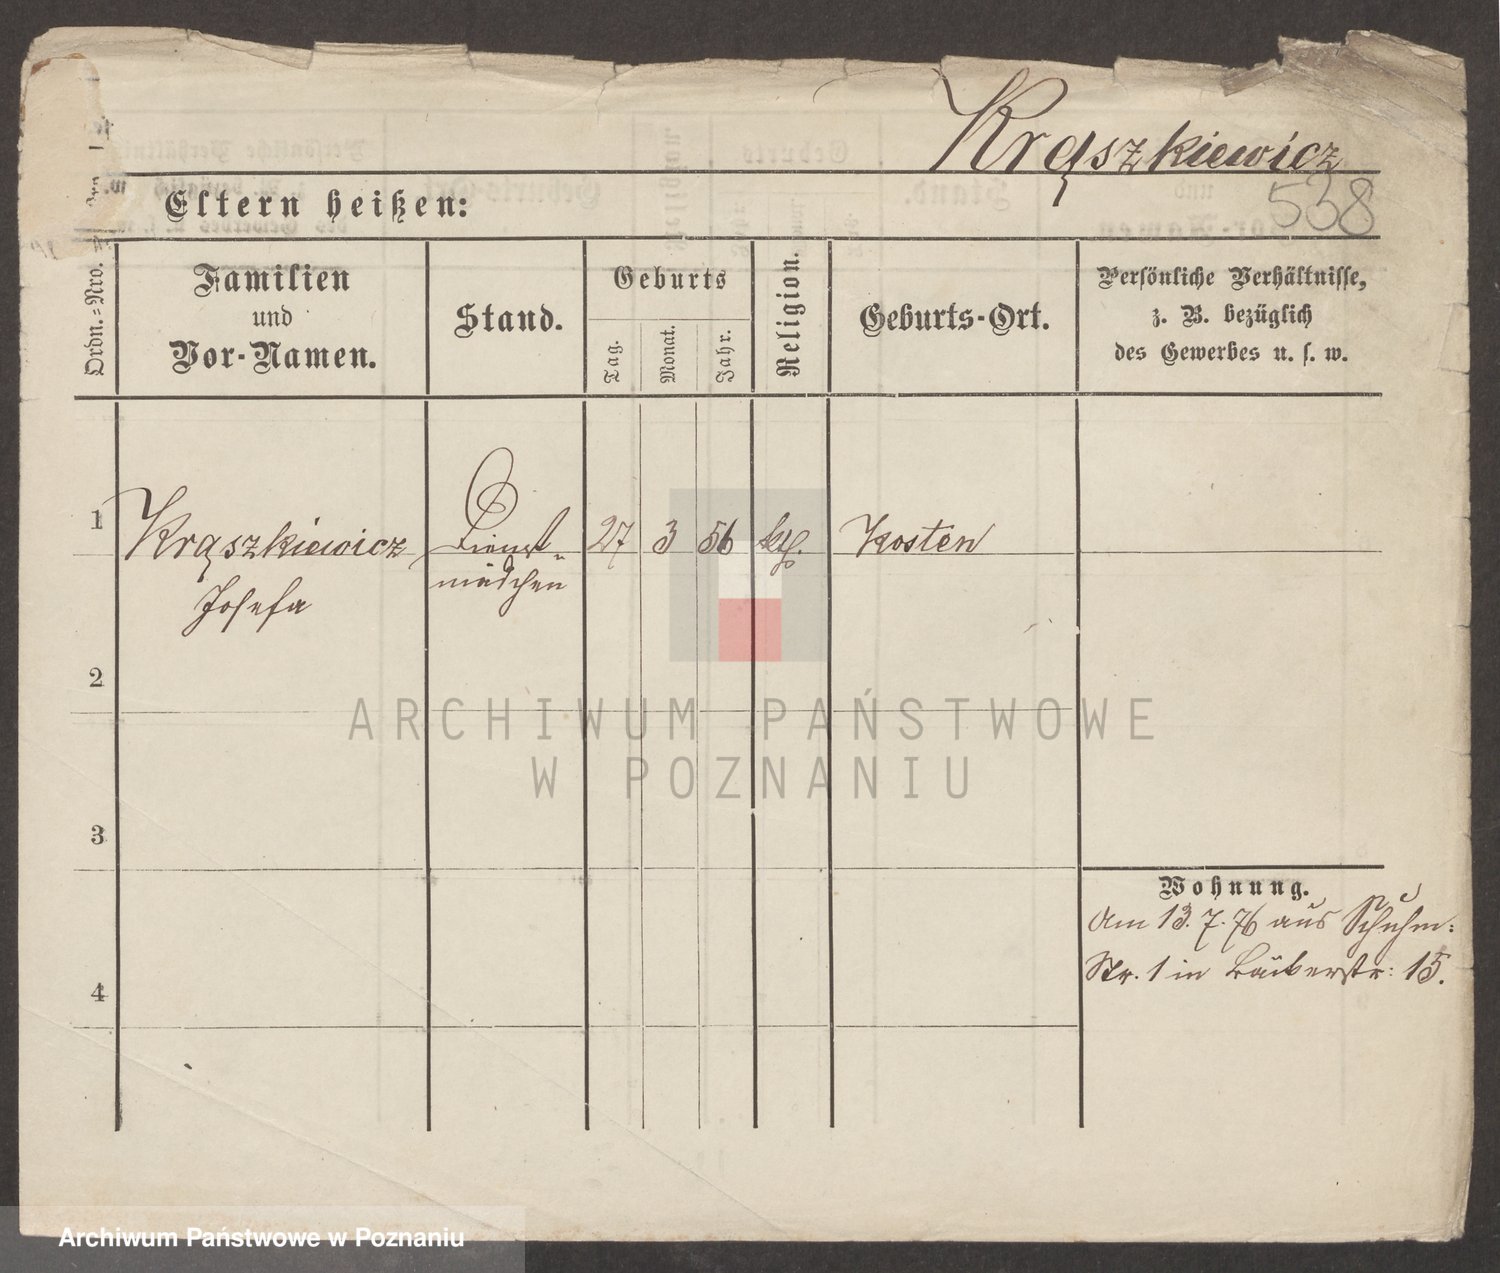 Krąszkiewicz
538
Eltern heißen:
Ordn.-Nro.
Familien
und
Vor-Namen.
Stand.
Geburts
Tag.
Monat.
Jahr.
Religion.
Geburts-Ort.
Persönliche Verhältnisse,
z. B. bezüglich
des Gewerbes u. s. w.
1 Krąszkiewicz Dienst- 27 3 56 kth. Kosten
Josefa mädchen
2
3
4
Wohnung.
Am 13.7.76 aus Schuhm:
Str. 1 in Bäckerstr: 15.
ARCHIWUM PAŃSTWOWE
W POZNANIU
Archiwum Państwowe w Poznaniu